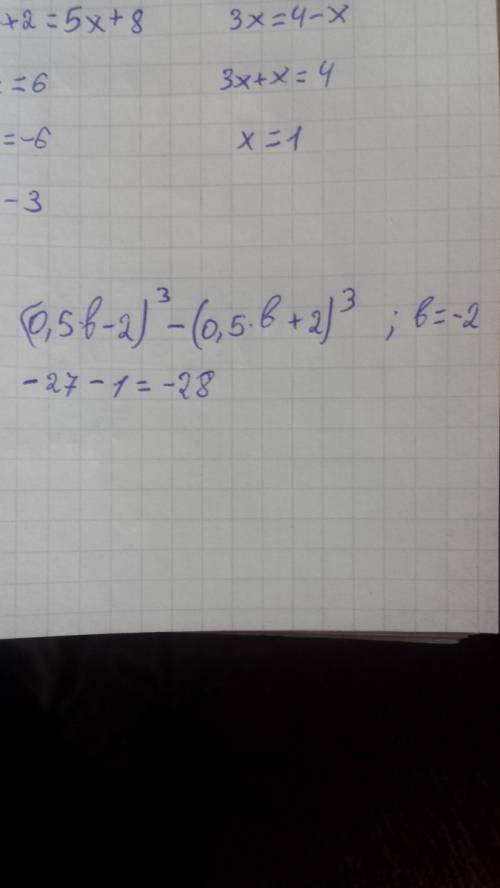 +2=5x+8 3x=4-x
=6 3x+x=4
=-6 x=1
-3
(0,5·в-2)³-(0,5·в+2)³ ; в=-2
-27-1=-28